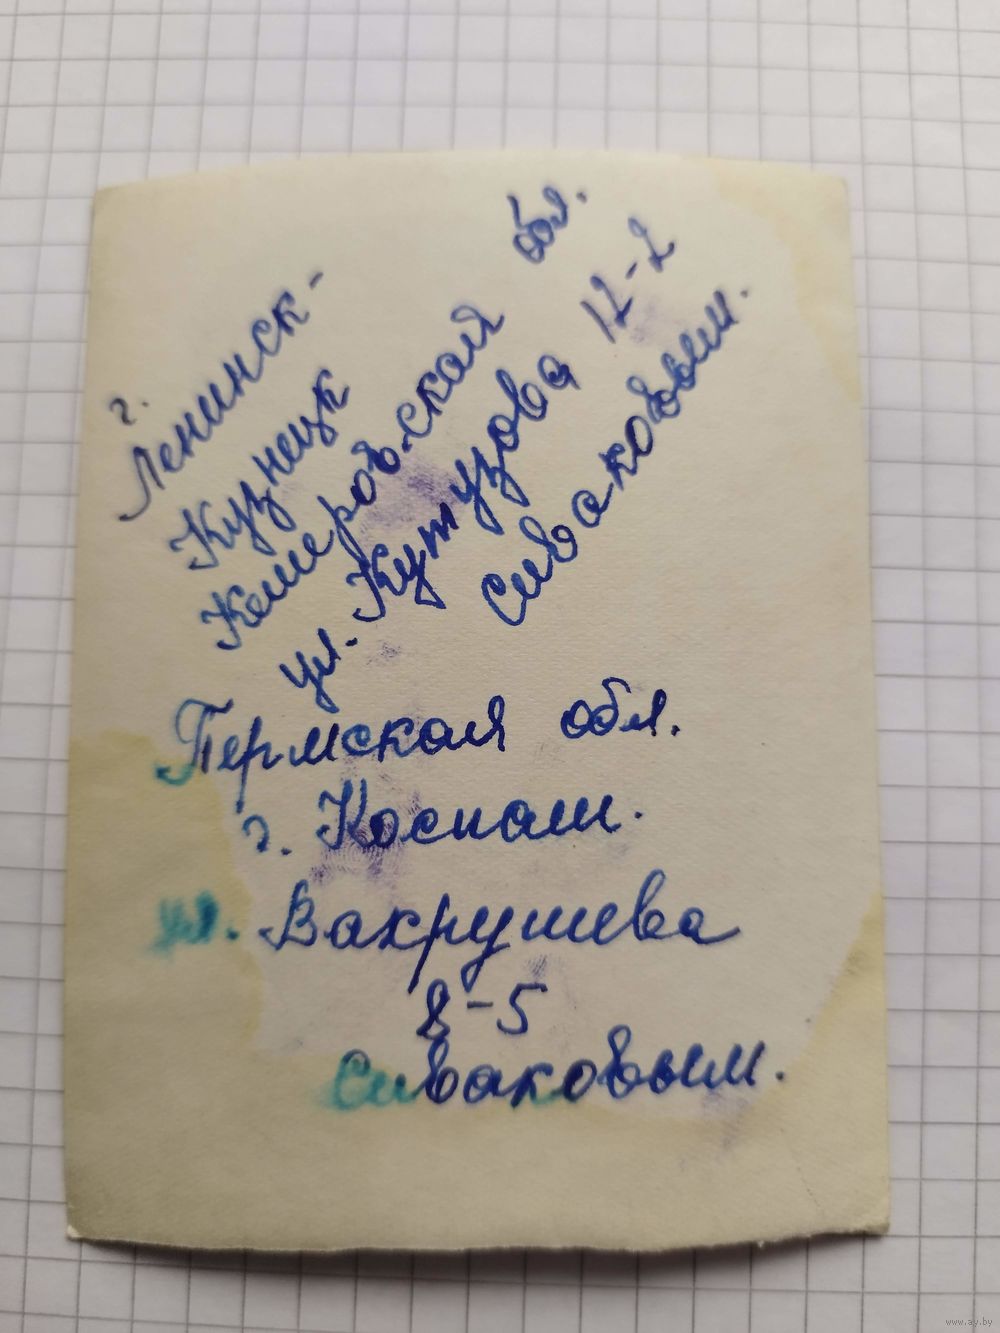 г.
Ленинск-
Кузнецк
Кемеровская обл.
ул. Кутузова 12-2
Сиваковым.
Пермская обл.
г. Коспаш.
ул. Вахрушева
8-5
Сиваковым.
www.ay.by